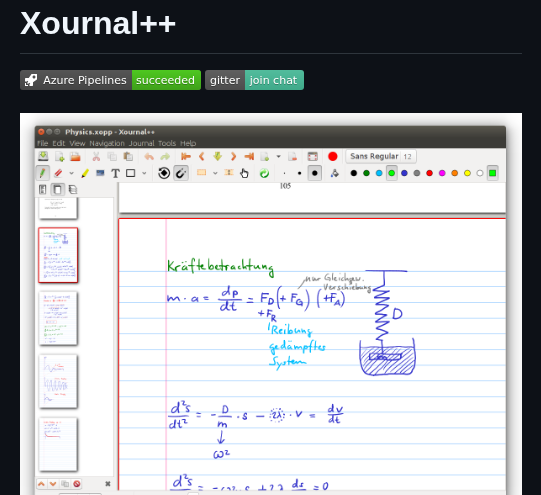 Xournal++
Azure Pipelines succeeded gitter join chat
Physics.xopp - Xournal++
File Edit View Navigation Journal Tools Help
Sans Regular 12
T
105
Kräftebetrachtung
nur Gleichgew.
Verschiebung
m · a = dp/dt = F_D (+ F_G) (+F_A)
+ F_R
D
Reibung
gedämpftes
System
d²s/dt² = - D/m · s - 2λ · v = dv/dt
↓
ω²
d²s = -ω² · s + 2λ ds = 0